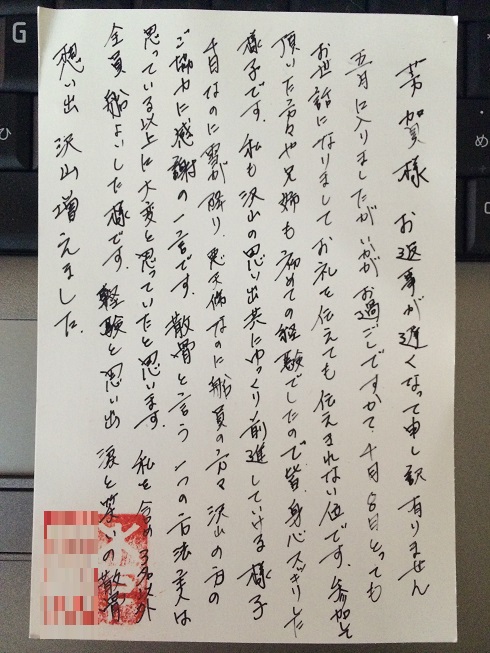 芳賀様 お返事が遅くなって申し訳有りません
五月に入りましたがいかがお過ごしですか? 四月8日とっても
お世話になりましてお礼を伝えても伝えきれない位です。参加して
頂いた方々や兄姉も初めての経験でしたので皆、身心スッキリした
様子です。私も沢山の思い出共にゆっくり前進していける様子
四月なのに雪が降り、悪天候なのに船員の方々沢山の方の
ご協力に感謝の一言です。散骨と言う一つの方法実は
思っている以上に大変と思っていたと思います。私を含め3名以外
全員船よいした様です。経験と思い出 涙と笑いの散骨
想い出 沢山増えました.
G
ひ
め